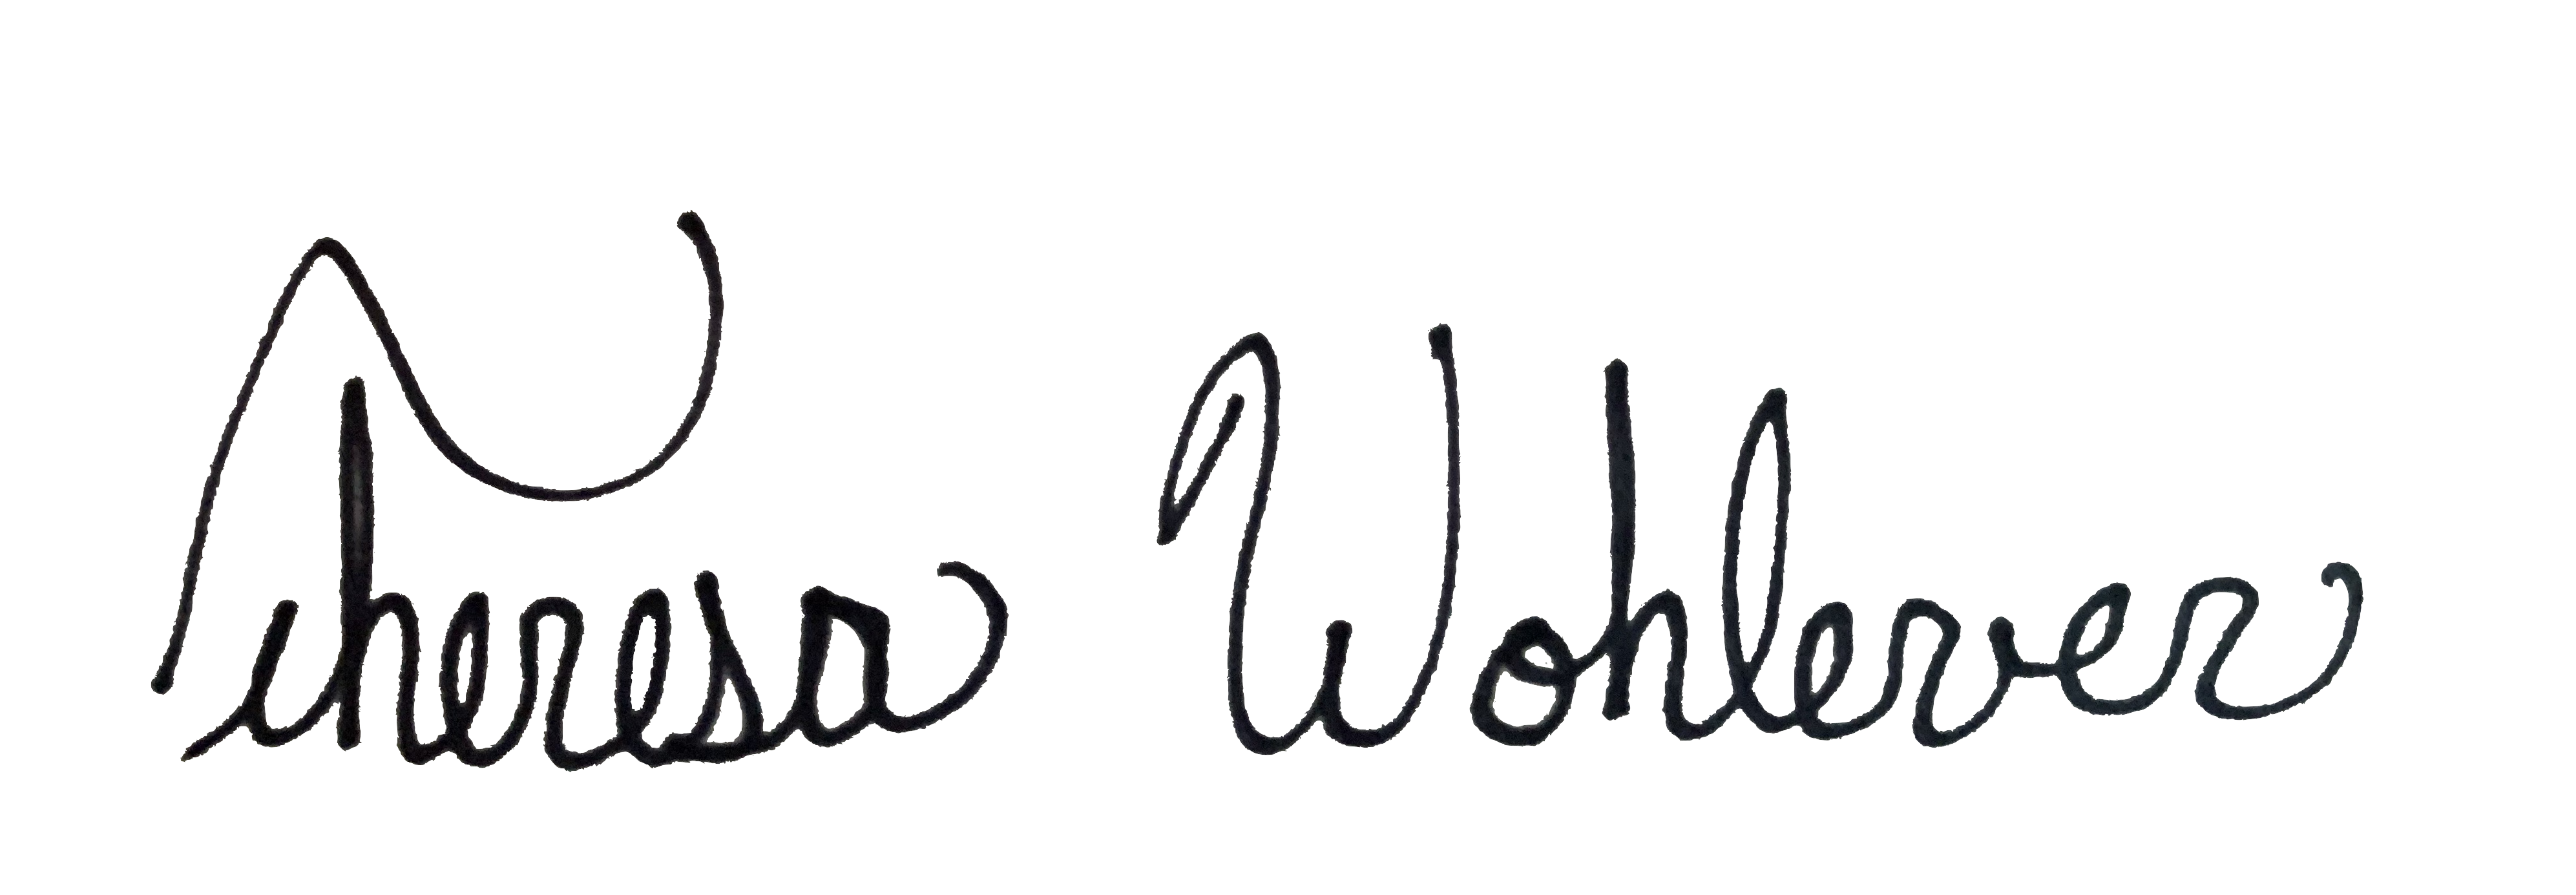 Theresa Wohlever